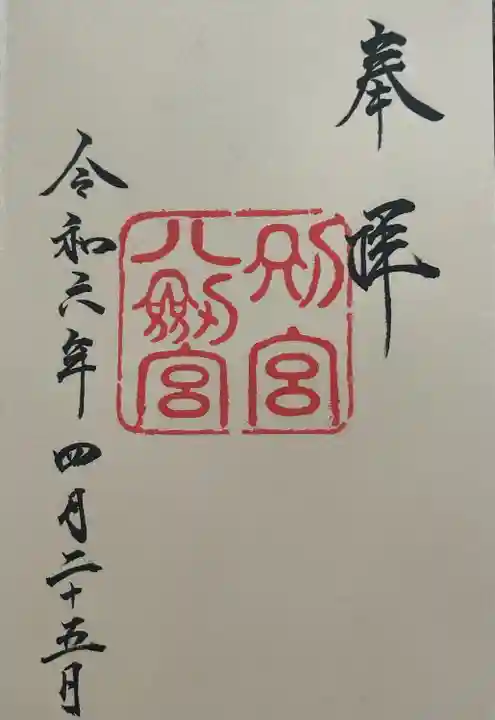 奉拝
別宮
八剱宮
令和六年四月二十五日